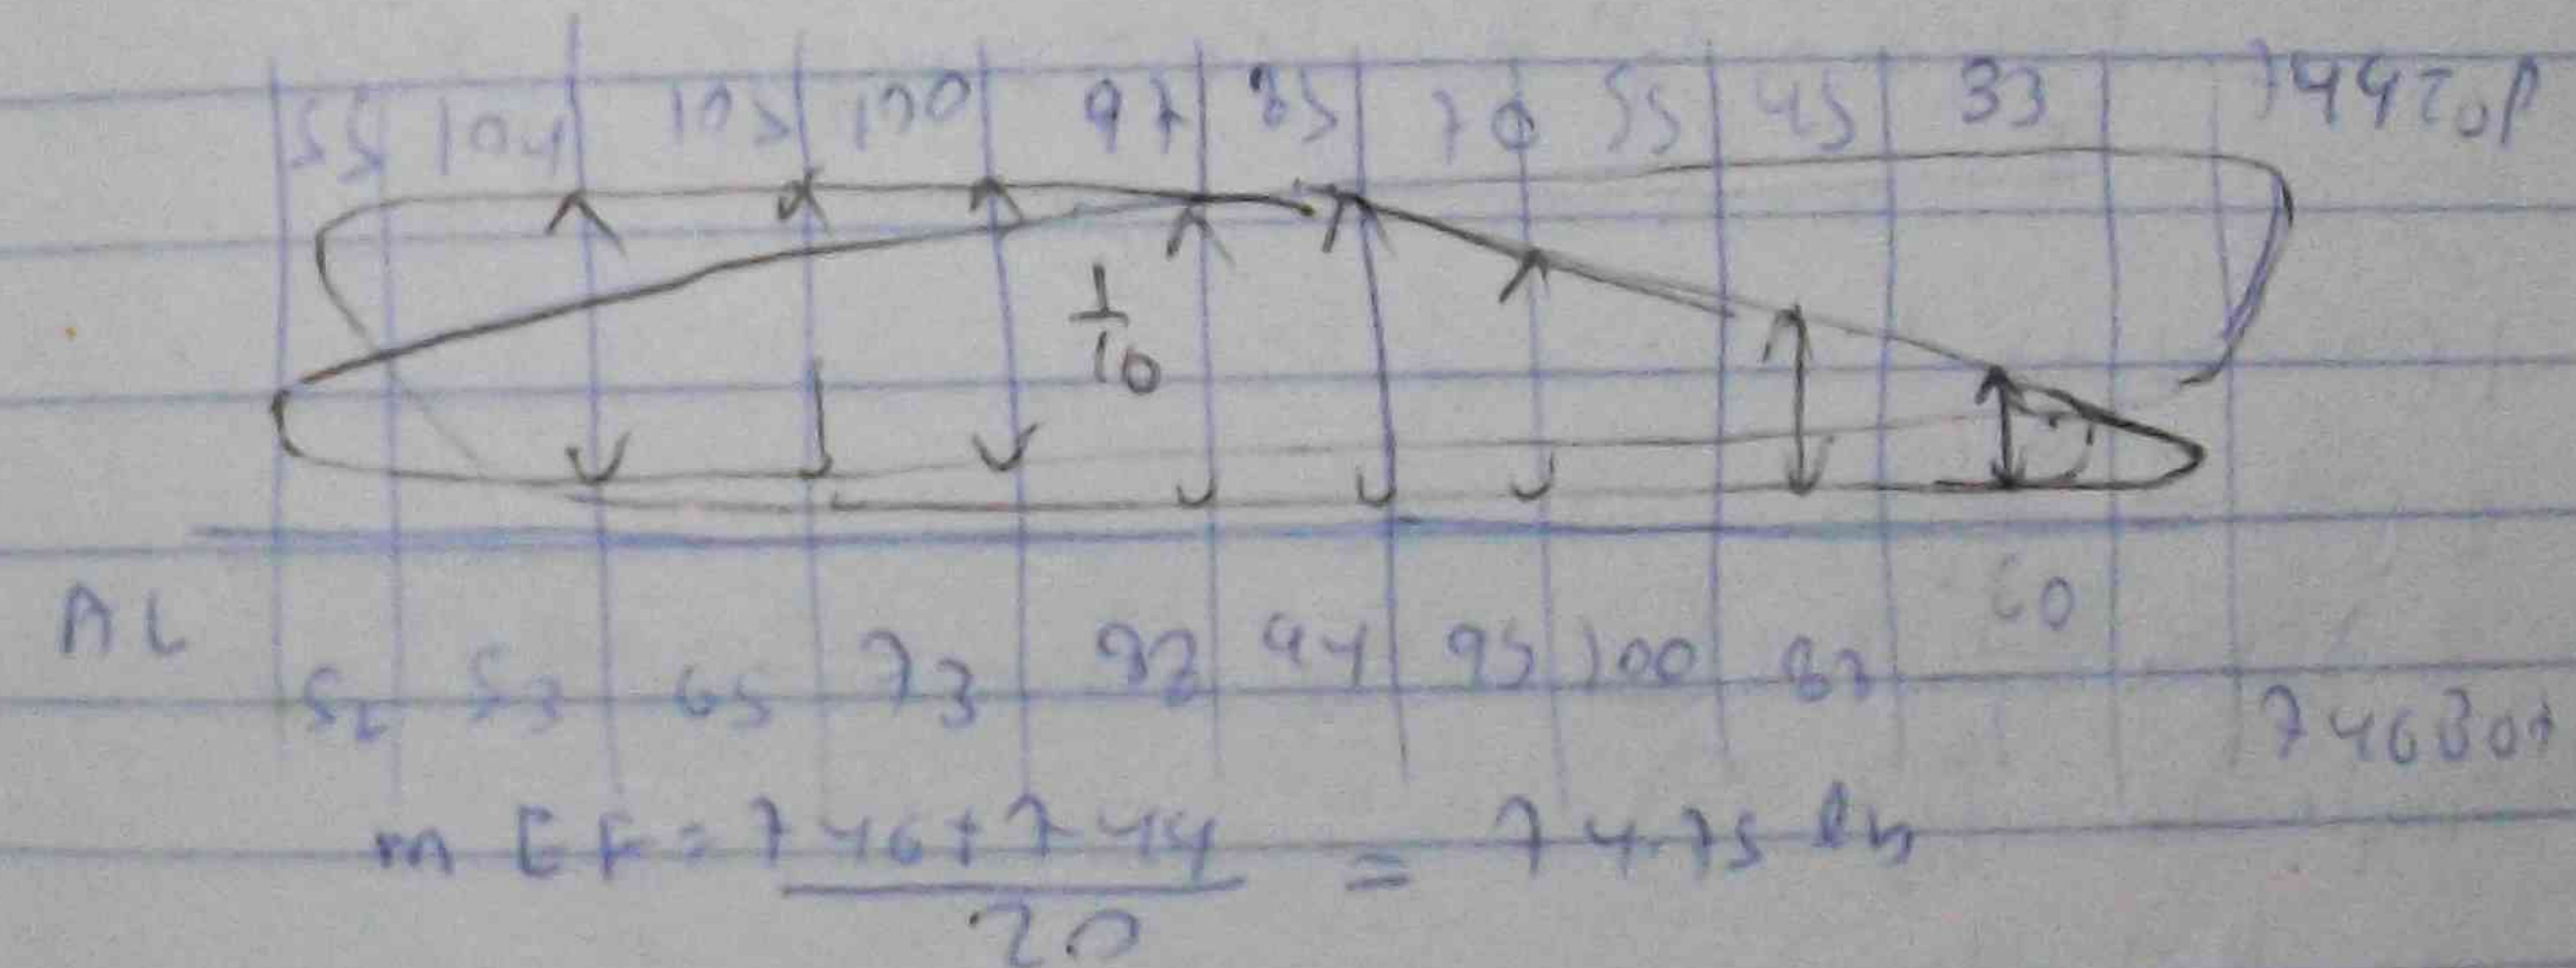 55 104 105 100 97 85 70 55 45 33 744 Top
1/10
AL
52 53 65 73 92 94 95 100 87 60 746 Bot
m EF = 746 + 744 / 20 = 74.75 lb